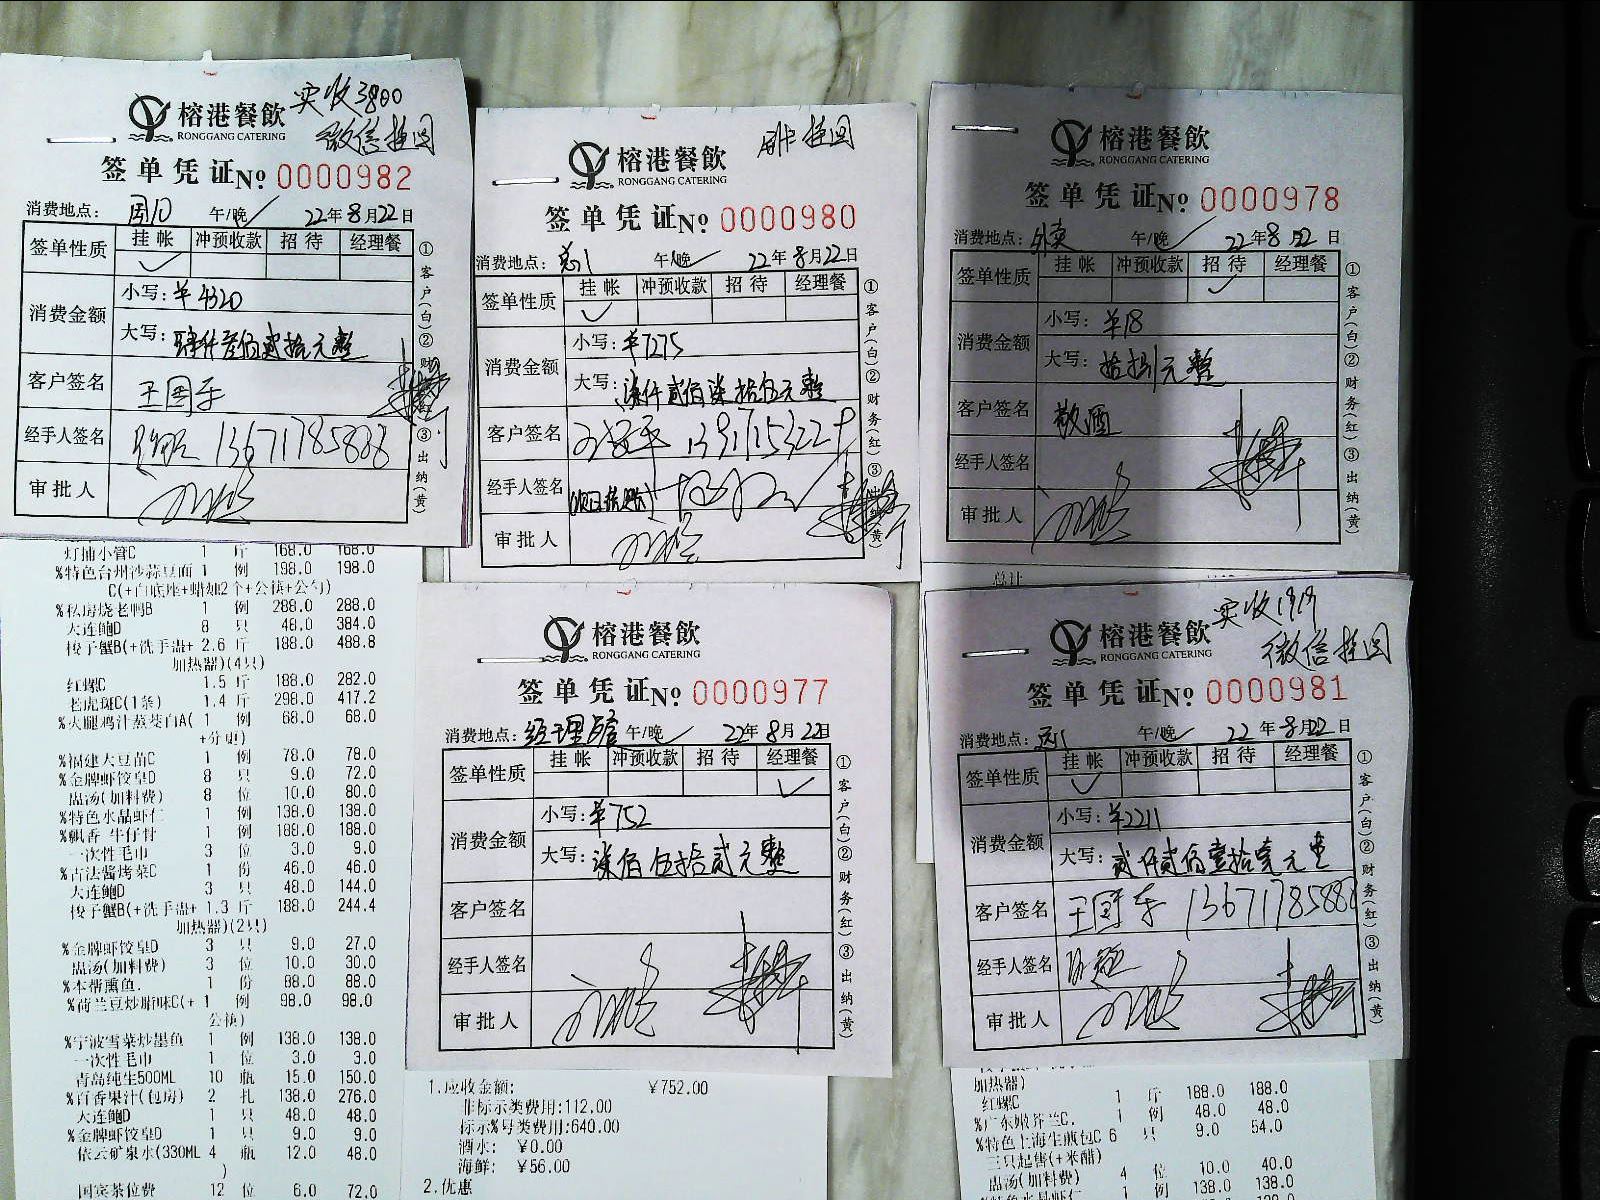 实收3800
微信挂回
榕港餐飲
RONGGANG CATERING
签单凭证No 0000982
消费地点： 午/晚 22年8月22日
签单性质 挂帐 冲预收款 招待 经理餐
消费金额
小写：¥4320
大写：肆仟叁佰贰拾元整
客户签名 王国平
经手人签名 13671785888
审批人
①客户(白)②财务(红)③出纳(黄)
挂回
榕港餐飲
RONGGANG CATERING
签单凭证No 0000980
消费地点： 午/晚 22年8月22日
签单性质 挂帐 冲预收款 招待 经理餐
消费金额
小写：¥7275
大写：柒仟贰佰柒拾伍元整
客户签名
经手人签名
审批人
①客户(白)②财务(红)③出纳(黄)
榕港餐飲
RONGGANG CATERING
签单凭证No 0000978
消费地点：外卖 午/晚 22年8月22日
签单性质 挂帐 冲预收款 招待 经理餐
消费金额
小写：¥18
大写：拾捌元整
客户签名 敬酒
经手人签名
审批人
①客户(白)②财务(红)③出纳(黄)
总计
灯捕小管C 1 斤 168.0 168.0
%特色台州沙蒜豆面 1 例 198.0 198.0
C(+白底座+蜡烛2个+公筷+公勺)
%私房烧老鸭B 1 例 288.0 288.0
大连鲍D 8 只 48.0 384.0
梭子蟹B(+洗手盅+ 2.6 斤 188.0 488.8
加热器)(4只)
红螺C 1.5 斤 188.0 282.0
老虎斑C(1条) 1.4 斤 298.0 417.2
%火腿鸡汁蒸菜白A( 1 例 68.0 68.0
+分更)
%福建大豆苗C 1 例 78.0 78.0
%金牌虾饺皇D 8 只 9.0 72.0
盅汤(加料费) 8 位 10.0 80.0
%特色水晶虾仁 1 例 138.0 138.0
%飘香 牛仔骨 1 例 188.0 188.0
一次性毛巾 3 位 3.0 9.0
%古法酱烤菜C 1 份 46.0 46.0
大连鲍D 3 只 48.0 144.0
梭子蟹B(+洗手盅+ 1.3 斤 188.0 244.4
加热器)(2只)
%金牌虾饺皇D 3 只 9.0 27.0
盅汤(加料费) 3 位 10.0 30.0
%本帮熏鱼. 1 份 88.0 88.0
%荷兰豆炒腊味C(+ 1 例 98.0 98.0
公筷)
%宁波雪菜炒墨鱼 1 例 138.0 138.0
一次性毛巾 1 位 3.0 3.0
青岛纯生500ML 10 瓶 15.0 150.0
%百香果汁(包房) 2 扎 138.0 276.0
大连鲍D 1 只 48.0 48.0
%金牌虾饺皇D 1 只 9.0 9.0
依云矿泉水(330ML 4 瓶 12.0 48.0
)
国宾茶位费 12 位 6.0 72.0
榕港餐飲
RONGGANG CATERING
签单凭证No 0000977
消费地点：经理餐 午/晚 22年8月22日
签单性质 挂帐 冲预收款 招待 经理餐
消费金额
小写：¥752
大写：柒佰伍拾贰元整
客户签名
经手人签名
审批人
①客户(白)②财务(红)③出纳(黄)
1.应收金额： ¥752.00
非标示类费用:112.00
标示%号类费用:640.00
酒水： ¥0.00
海鲜： ¥56.00
2.优惠
实收1919
微信挂回
榕港餐飲
RONGGANG CATERING
签单凭证No 0000981
消费地点： 午/晚 22年8月22日
签单性质 挂帐 冲预收款 招待 经理餐
消费金额
小写：¥2211
大写：贰仟贰佰壹拾壹元整
客户签名 王国平 13671785888
经手人签名
审批人
①客户(白)②财务(红)③出纳(黄)
加热器)
红螺C 1 斤 188.0 188.0
%广东嫩芥兰C. 1 例 48.0 48.0
%特色上海生煎包C 6 只 9.0 54.0
三只起售(+米醋)
盅汤(加料费) 4 位 10.0 40.0
%特色水晶虾仁 1 例 138.0 138.0